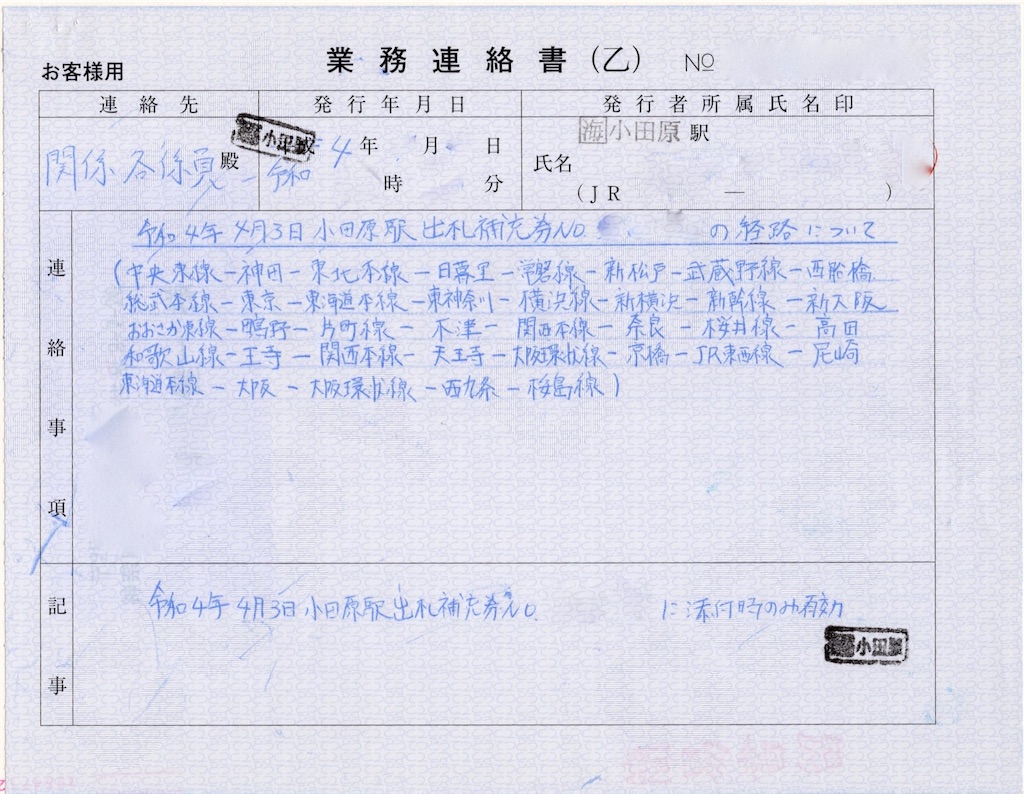 お客様用
業務連絡書(乙) No
連絡先 発行年月日 発行者所属氏名印
関係各係員 殿
令和 4年 月 日
時 分
海 小田原 駅
氏名
(JR ― )
連絡事項
令和4年4月3日小田原駅出札補充券NO. の経路について
(中央東線－神田－東北本線－日暮里－常磐線－新松戸－武蔵野線－西船橋
総武本線－東京－東海道本線－東神奈川－横浜線－新横浜－新幹線－新大阪
おおさか東線－鴫野－片町線－木津－関西本線－奈良－桜井線－高田
和歌山線－王寺－関西本線－天王寺－大阪環状線－京橋－JR東西線－尼崎
東海道本線－大阪－大阪環状線－西九条－桜島線)
記事
令和4年4月3日小田原駅出札補充券NO. に添付時のみ有効
小田原